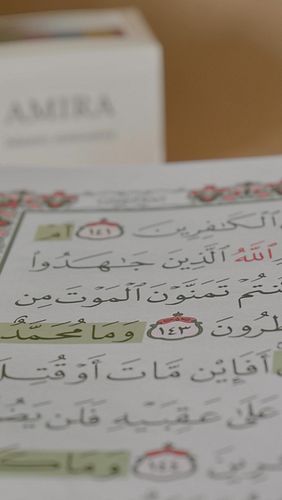 AMIRA
ٱلْكَٰفِرِينَ ١٤١ أَمْ
ٱللَّهُ ٱلَّذِينَ جَٰهَدُوا۟
كُنتُمْ تَمَنَّوْنَ ٱلْمَوْتَ مِن
تَنظُرُونَ ١٤٣ وَمَا مُحَمَّدٌ
أَفَإِي۟ن مَّاتَ أَوْ قُتِلَ
عَلَىٰ عَقِبَيْهِ فَلَن يَضُرَّ
١٤٤ وَمَا كَا